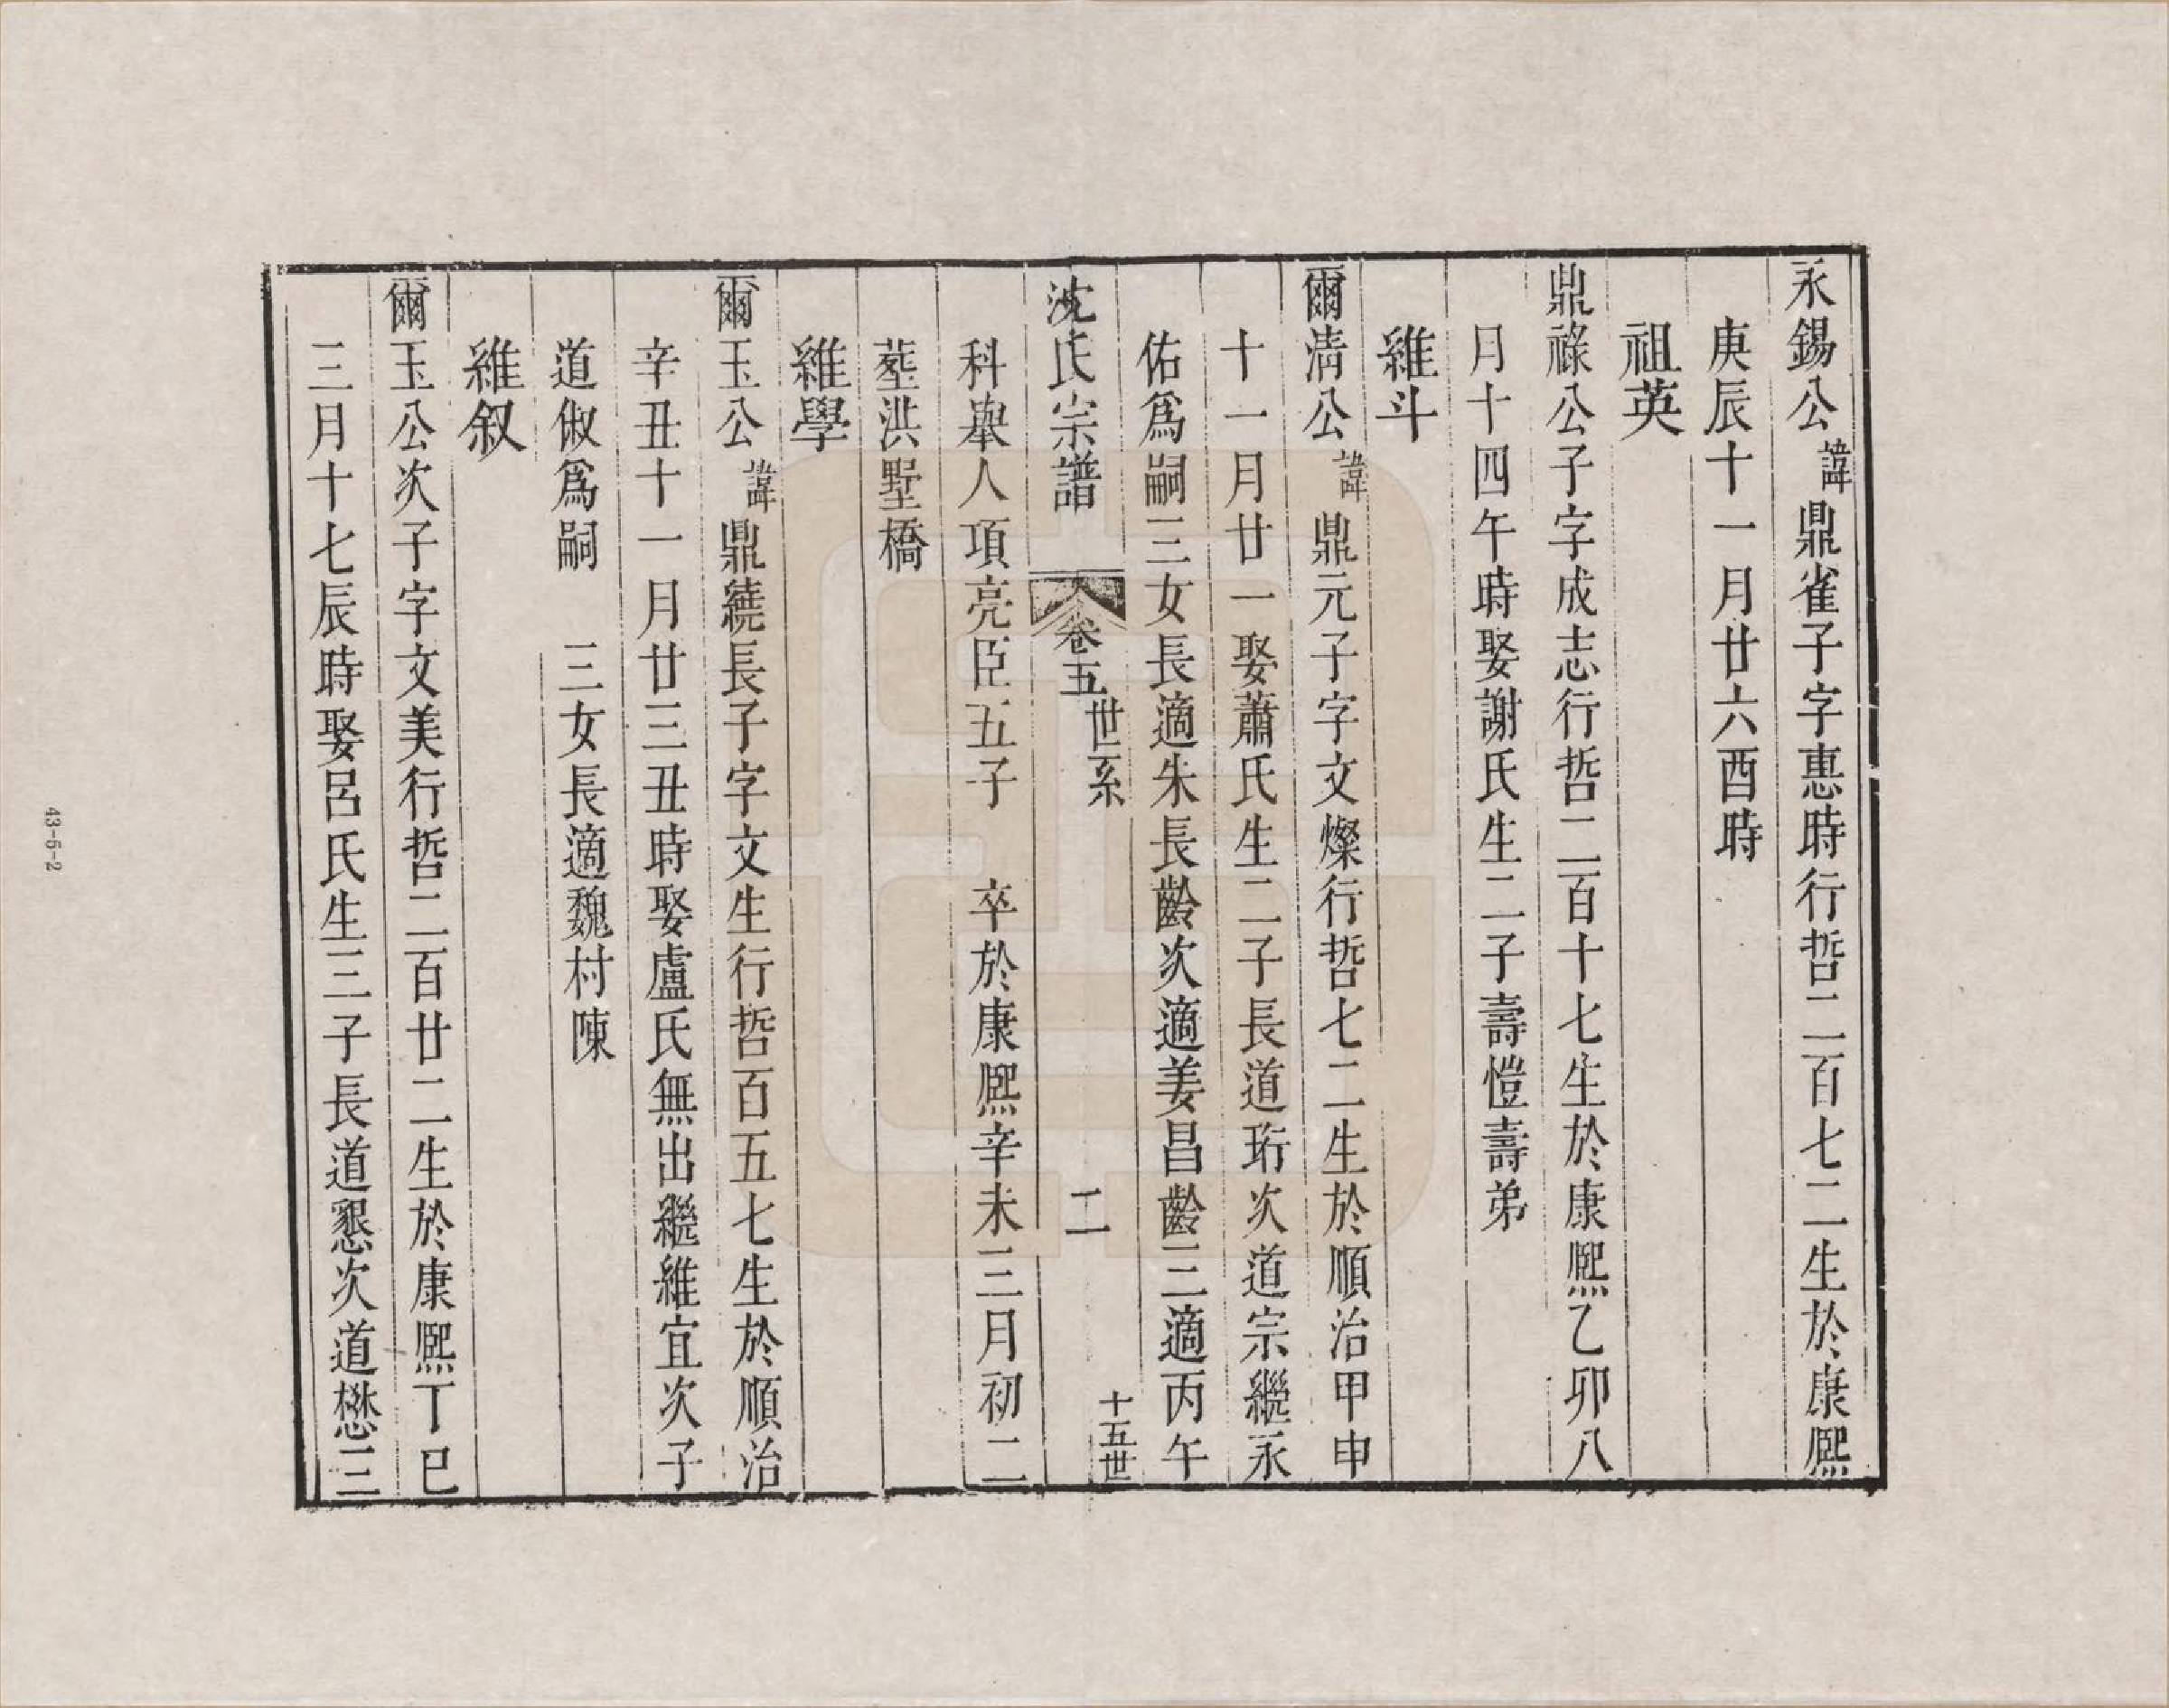 永錫公諱鼎雀子字惠時行哲二百七二生於康熙
庚辰十一月廿六酉時
祖英
鼎祿公子字成志行哲二百十七生於康熙乙卯八
月十四午時娶謝氏生二子壽愷壽弟
維斗
爾淸公諱鼎元子字文燦行哲七二生於順治甲申
十一月廿一娶蕭氏生二子長道珩次道宗繼永
佑爲嗣三女長適朱長齡次適姜昌齡三適丙午
沈氏宗譜 卷五 世系 二 十五世
科舉人項亮臣五子 卒於康熙辛未三月初二
塟洪墅橋
維學
爾玉公諱鼎蕘長子字文生行哲百五七生於順治
辛丑十一月廿三丑時娶盧氏無出繼維宜次子
道俶爲嗣 三女長適魏村陳
維叙
爾玉公次子字文美行哲二百廿二生於康熙丁巳
三月十七辰時娶呂氏生三子長道懇次道懋三
43-5-2